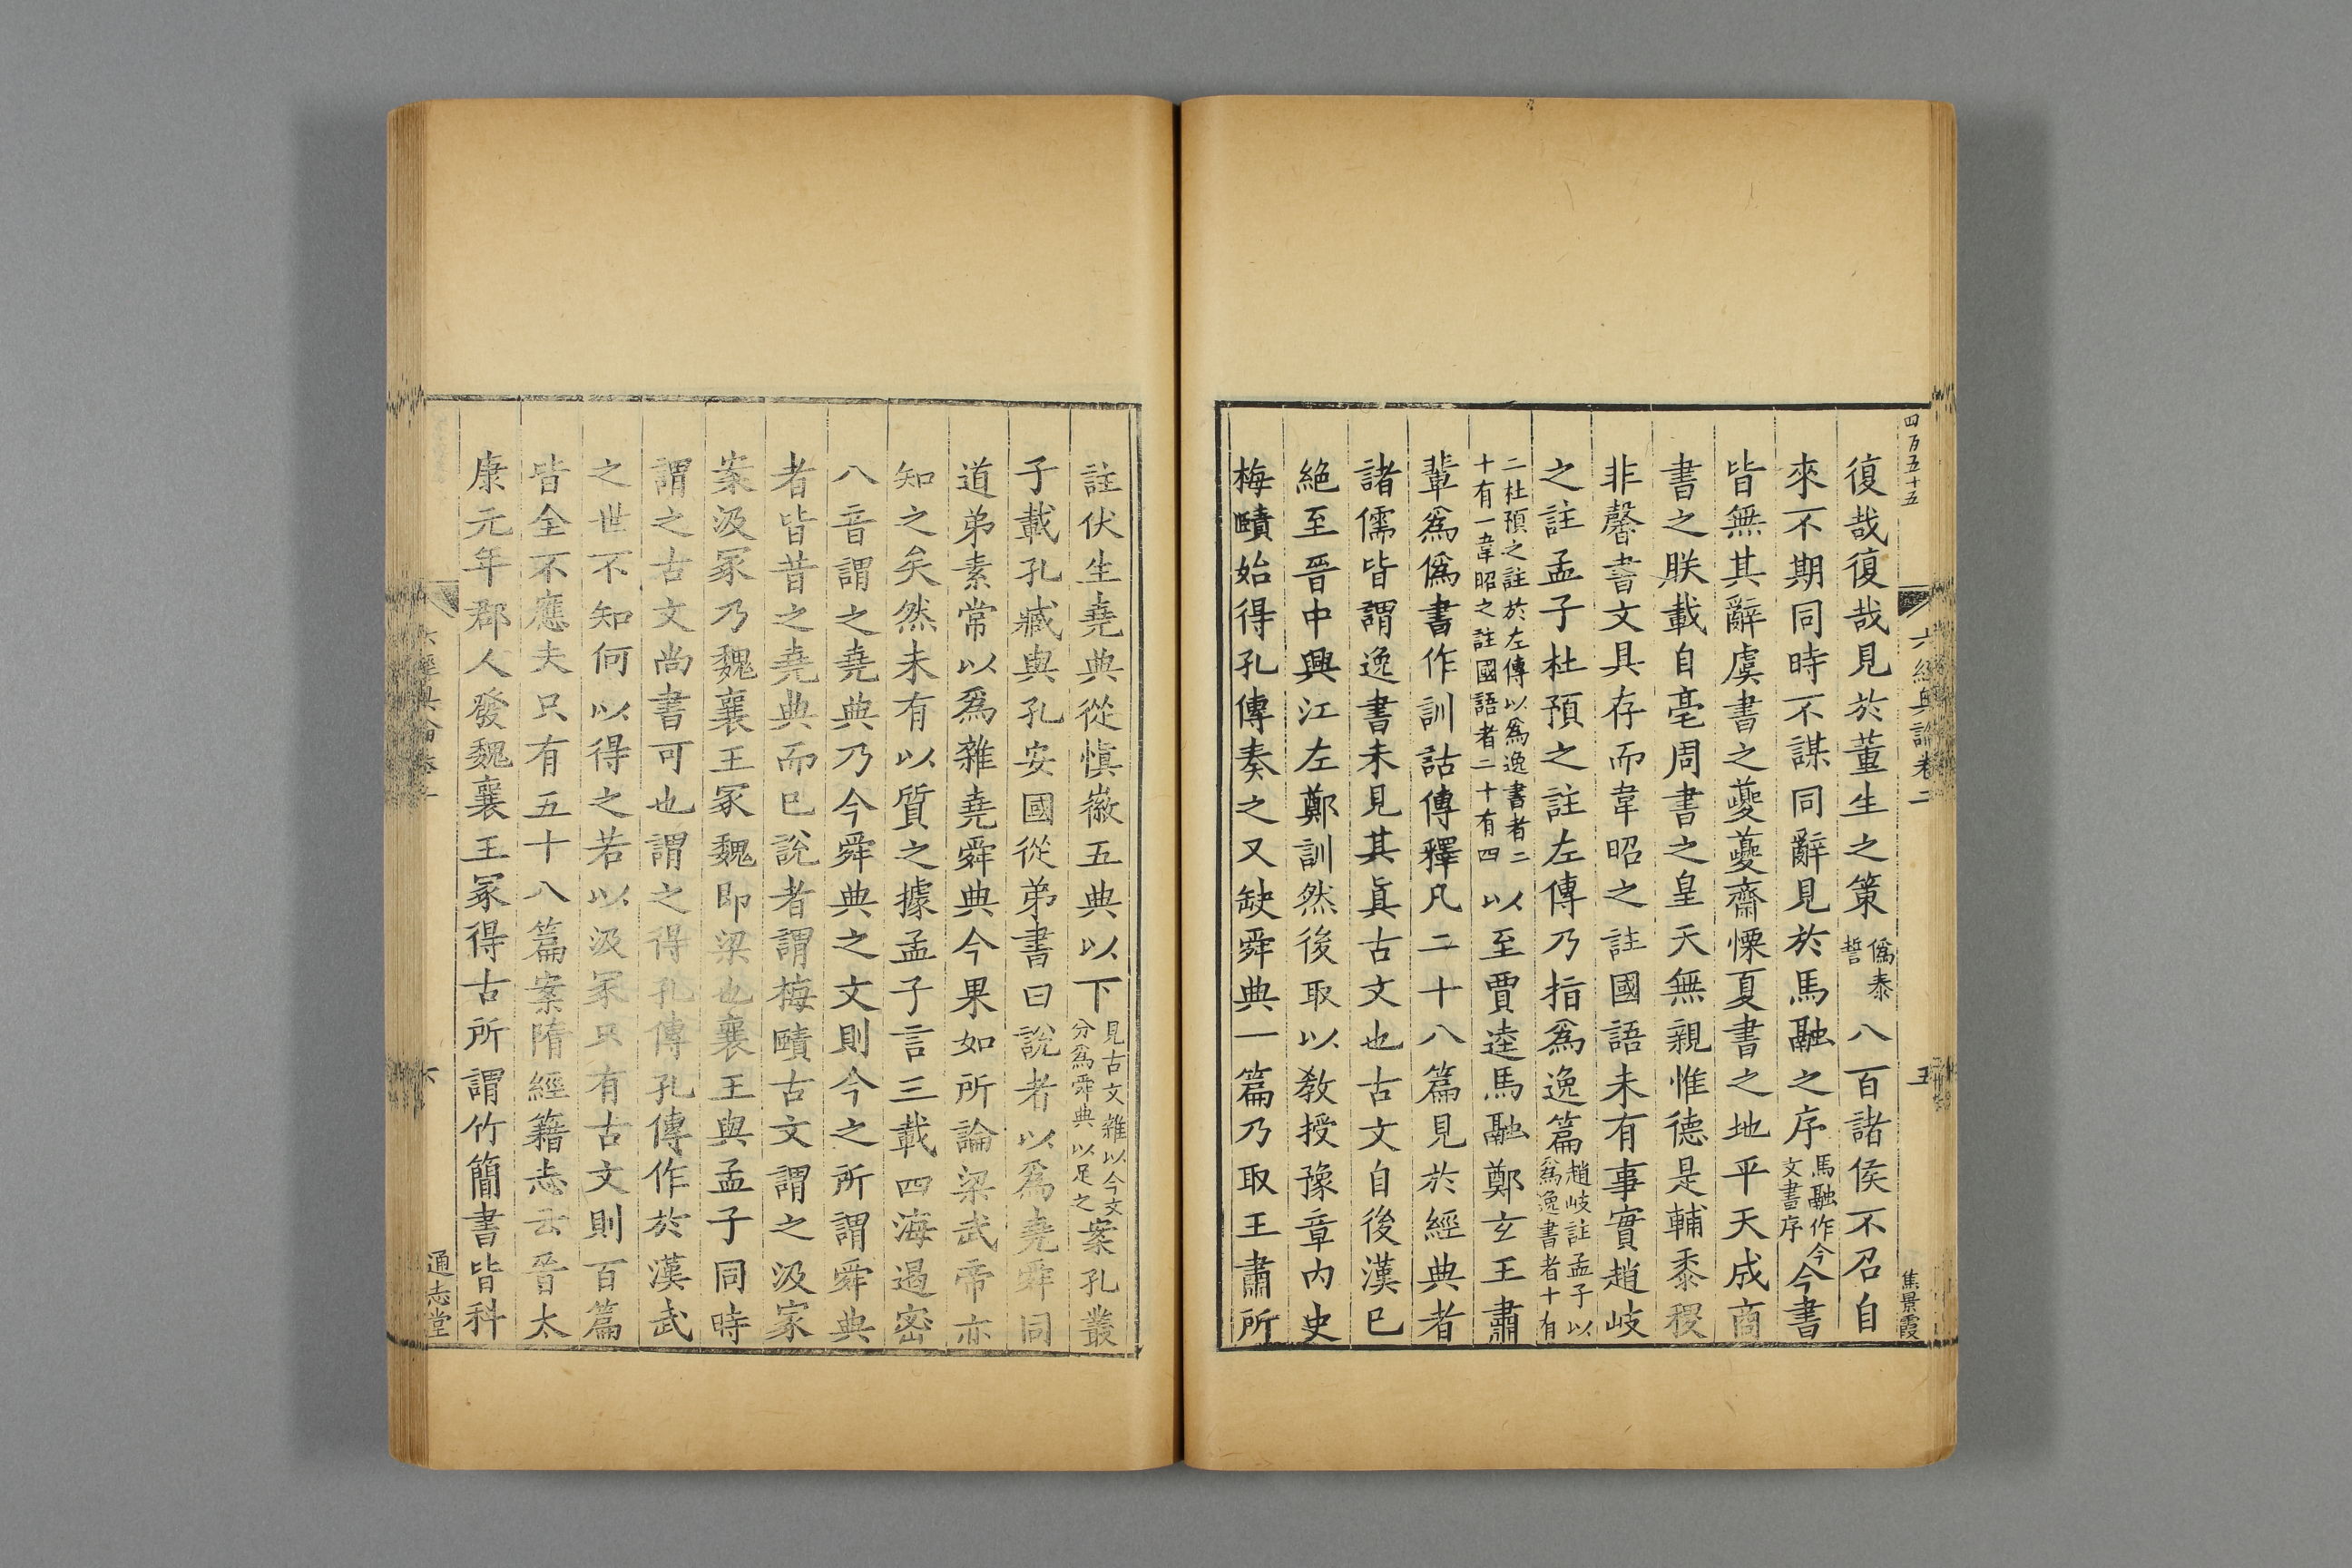 四百五十五
六經奧論卷二
五
焦景霞
復哉復哉見於董生之策僞泰誓八百諸侯不召自
來不期同時不謀同辭見於馬融之序馬融作今文書序今書
皆無其辭虞書之夔夔齋慄夏書之地平天成商
書之朕載自亳周書之皇天無親惟德是輔黍稷
非馨書文具存而韋昭之註國語未有事實趙岐
之註孟子杜預之註左傳乃指爲逸篇趙岐註孟子以爲逸書者十有
二杜預之註於左傳以爲逸書者二十有一韋昭之註國語者二十有四以至賈逵馬融鄭玄王肅
輩爲僞書作訓詁傳釋凡二十八篇見於經典者
諸儒皆謂逸書未見其眞古文也古文自後漢已
絕至晉中興江左鄭訓然後取以教授豫章内史
梅賾始得孔傳奏之又缺舜典一篇乃取王肅所
註伏生堯典從愼徽五典以下見古文雜以今文分爲舜典以足之案孔叢
子載孔臧與孔安國從弟書曰說者以爲堯舜同
道弟素常以爲雜堯舜典今果如所論梁武帝亦
知之矣然未有以質之據孟子言三載四海遏密
八音謂之堯典乃今舜典之文則今之所謂舜典
者皆昔之堯典而已說者謂梅賾古文謂之汲冢
案汲冢乃魏襄王冢魏即梁也襄王與孟子同時
謂之古文尚書可也謂之得孔傳孔傳作於漢武
之世不知何以得之若以汲冢只有古文則百篇
皆全不應夫只有五十八篇案隋經籍志云晉太
康元年郡人發魏襄王冢得古所謂竹簡書皆科
六
通志堂